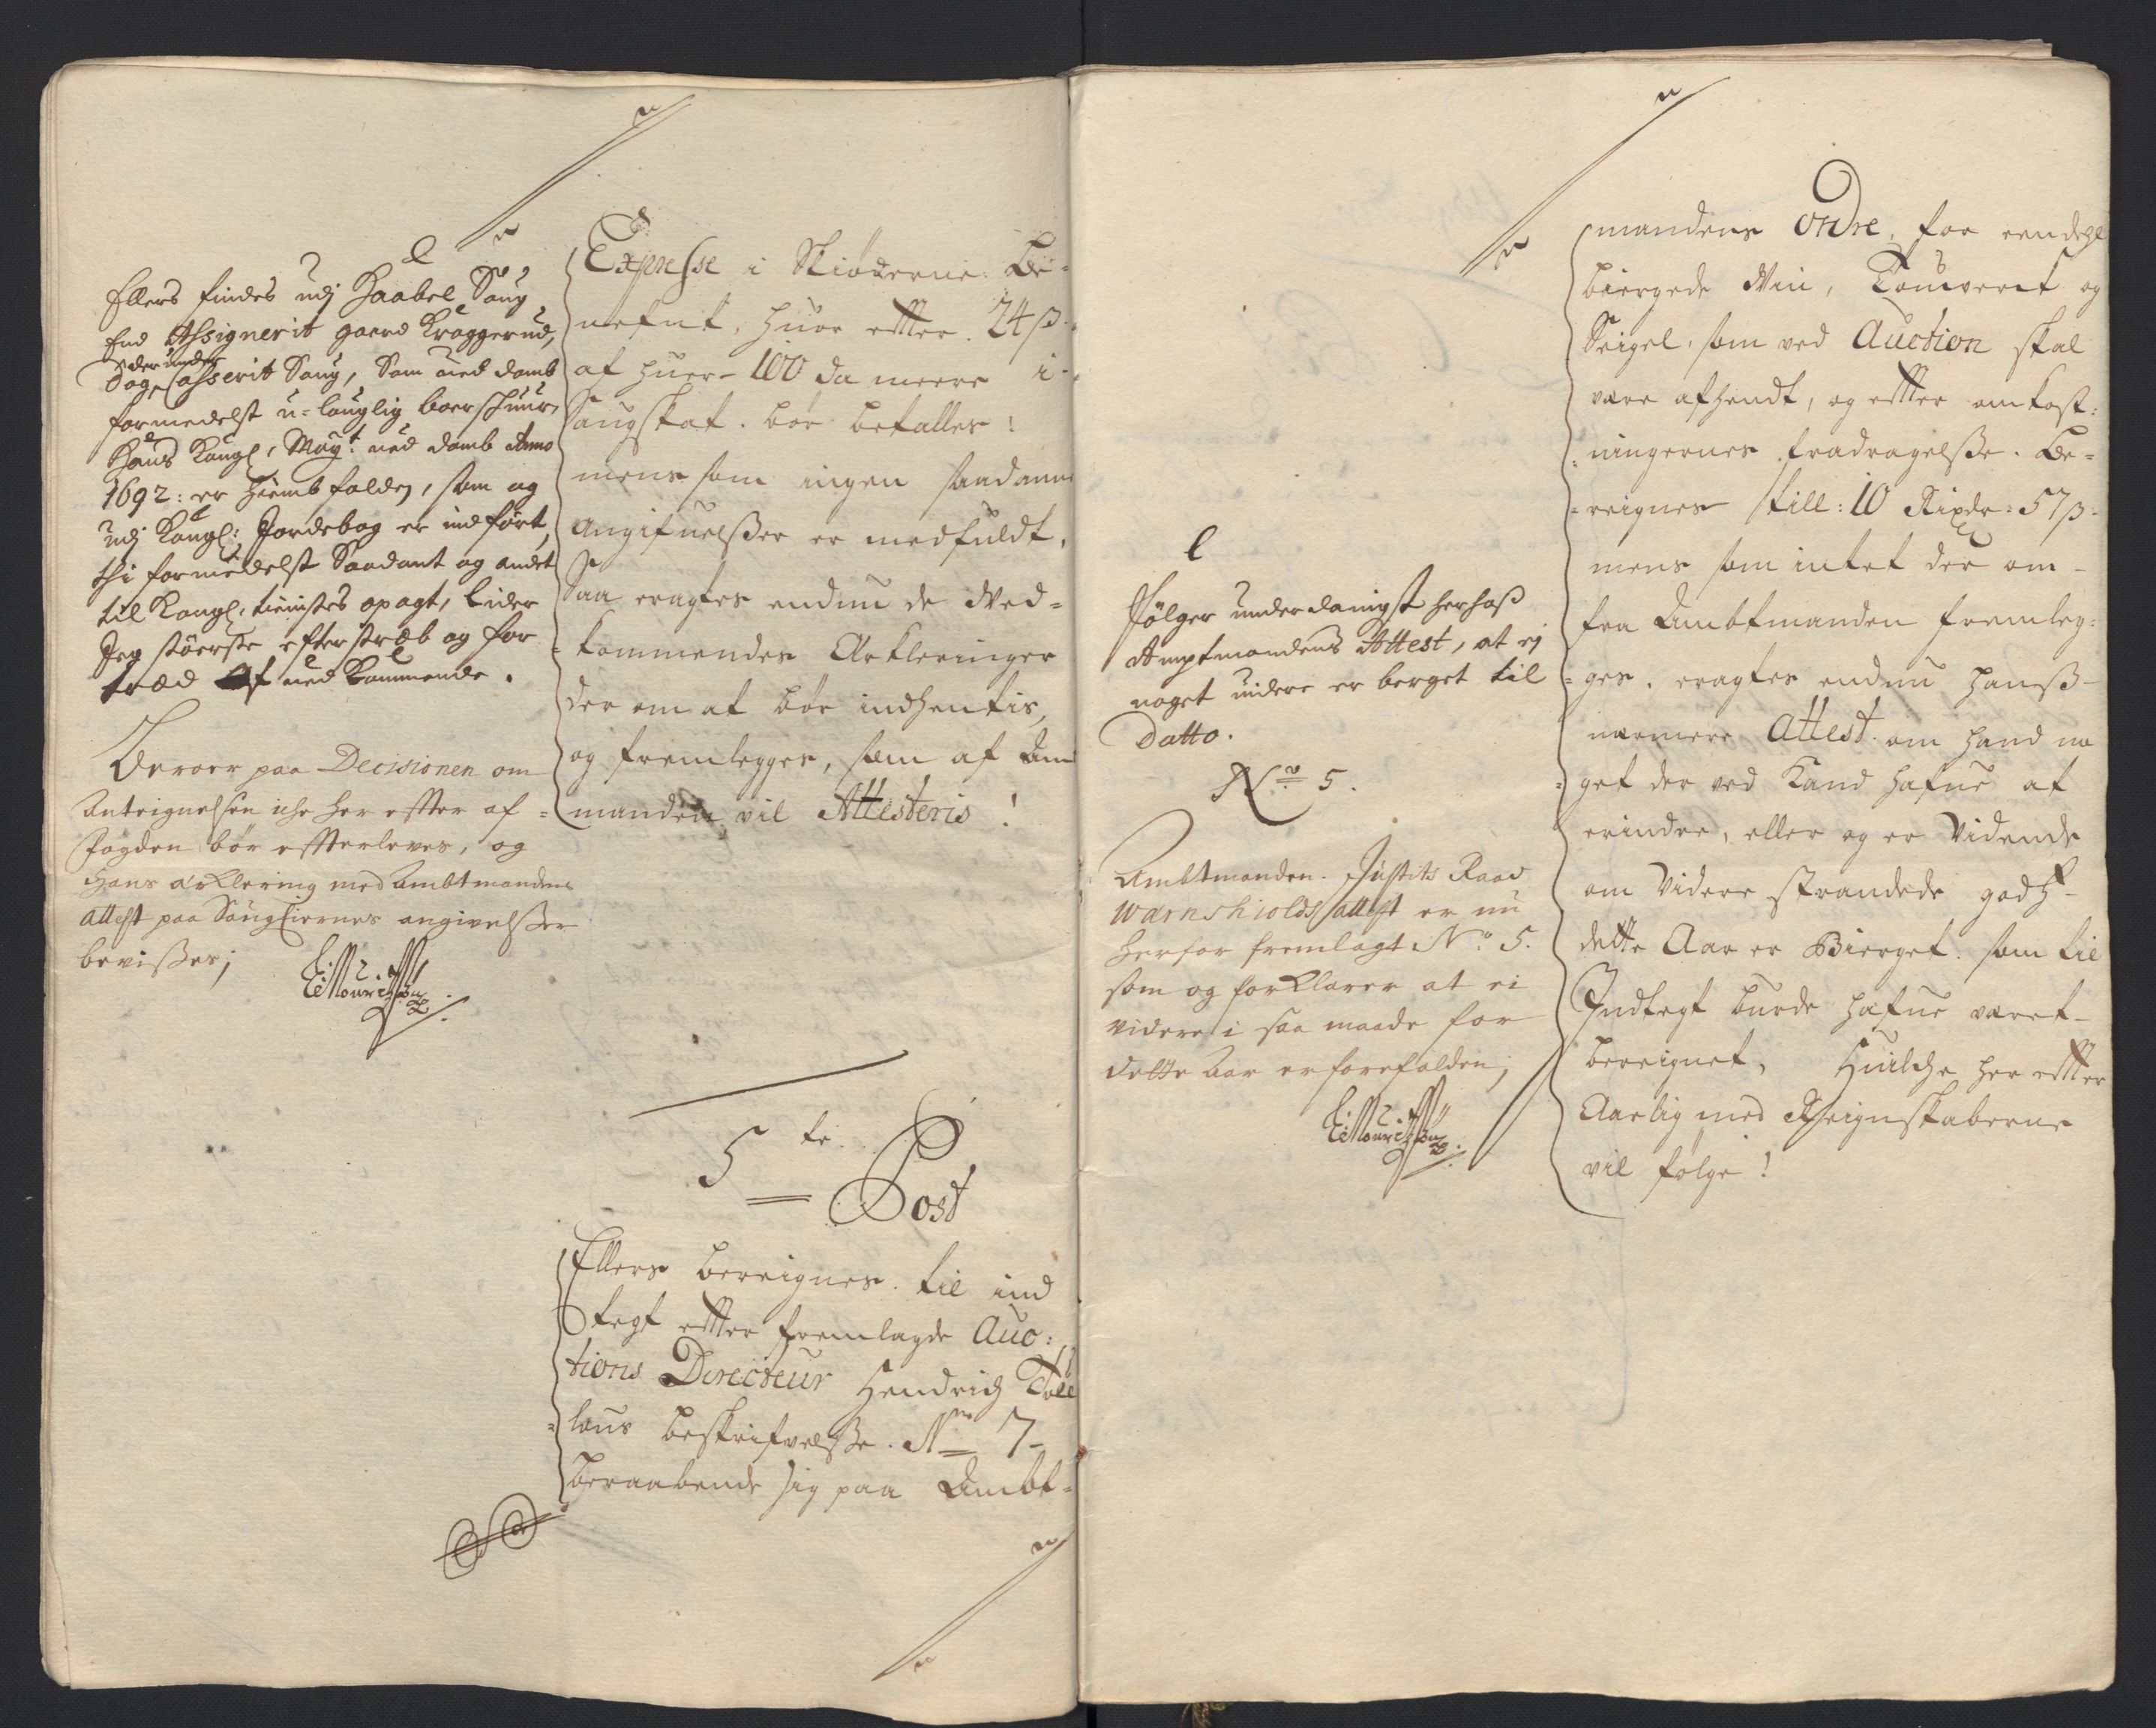 Ellers findes udj Haabel Saug
End Assignerit gaard Kroggerud,
derunder
dog Casserit Saug, Som ved domb
formedelst u-lauglig boerschuur,
Hans Kongl: Mayt: ved domb Anno
1692: er hiemb falden, som og
udj Kongl: Jordebog er indført,
thi formedelst Saadant og andet
til Kongl: tienistes opagt, lider
Jeg støerste efterstræb og for
træd af ved Kommende.
Derver paa Decisionen om
Antegnelsen iche her efter af
Fogden bør efterleves, og
Hans erklering med Ambtmandens
attest paa Saugiernes angivelsser
bevisses;
Expresse i Skiøderne Be-
nefnt, huor efter 24 ß
af huer 100 da meere i
Saugskat. bør betalles!
mens som ingen saadanne
Angifuelsser er medfuldt,
Saa eragtes endnu de Ved-
kommendes Erkleringer
der om at bør indhentis,
og fremlegges, som af Am
manden vil Attesteris!
5te Post
Ellers bereignes til ind
tegt efter fremlagde Auc:
tions Directeur Hendrich Toll
laus beskrifvelsse. No 7-
beraabende sig paa Ambt-
l
Følger underdanigst herhos
Amptmandens Attest, at ej
noget videre er berget til
Datto.
No 5.
Ambtmanden Justits Raad
Warnshiolds attest er nu
herfor fremlagt No 5.
som og forklarer at ei
videre i saa maade for
dette Aar er forefalden;
mandens Ordre, for eendehl
biergede Vin, Touverct og
Seigel, som ved Auction skal
være afhendt, og efter omkost:
ningernes fradragelsse. Be-
reignes till: 10 Rixdr: 57 ß
mens som intet der om
fra Ambtmanden fremleg:
ges, eragtes endnu hanss
nærmere Attest om hand no
get der ved Kand hafue at
erindre, eller og er Vidende
om Videre strandede godtz
dette Aar er Bierget. som til
Indtegt burde hafue været
bereignet, Huilche her efter
Aarlig med Reignskaberne
vil følge!